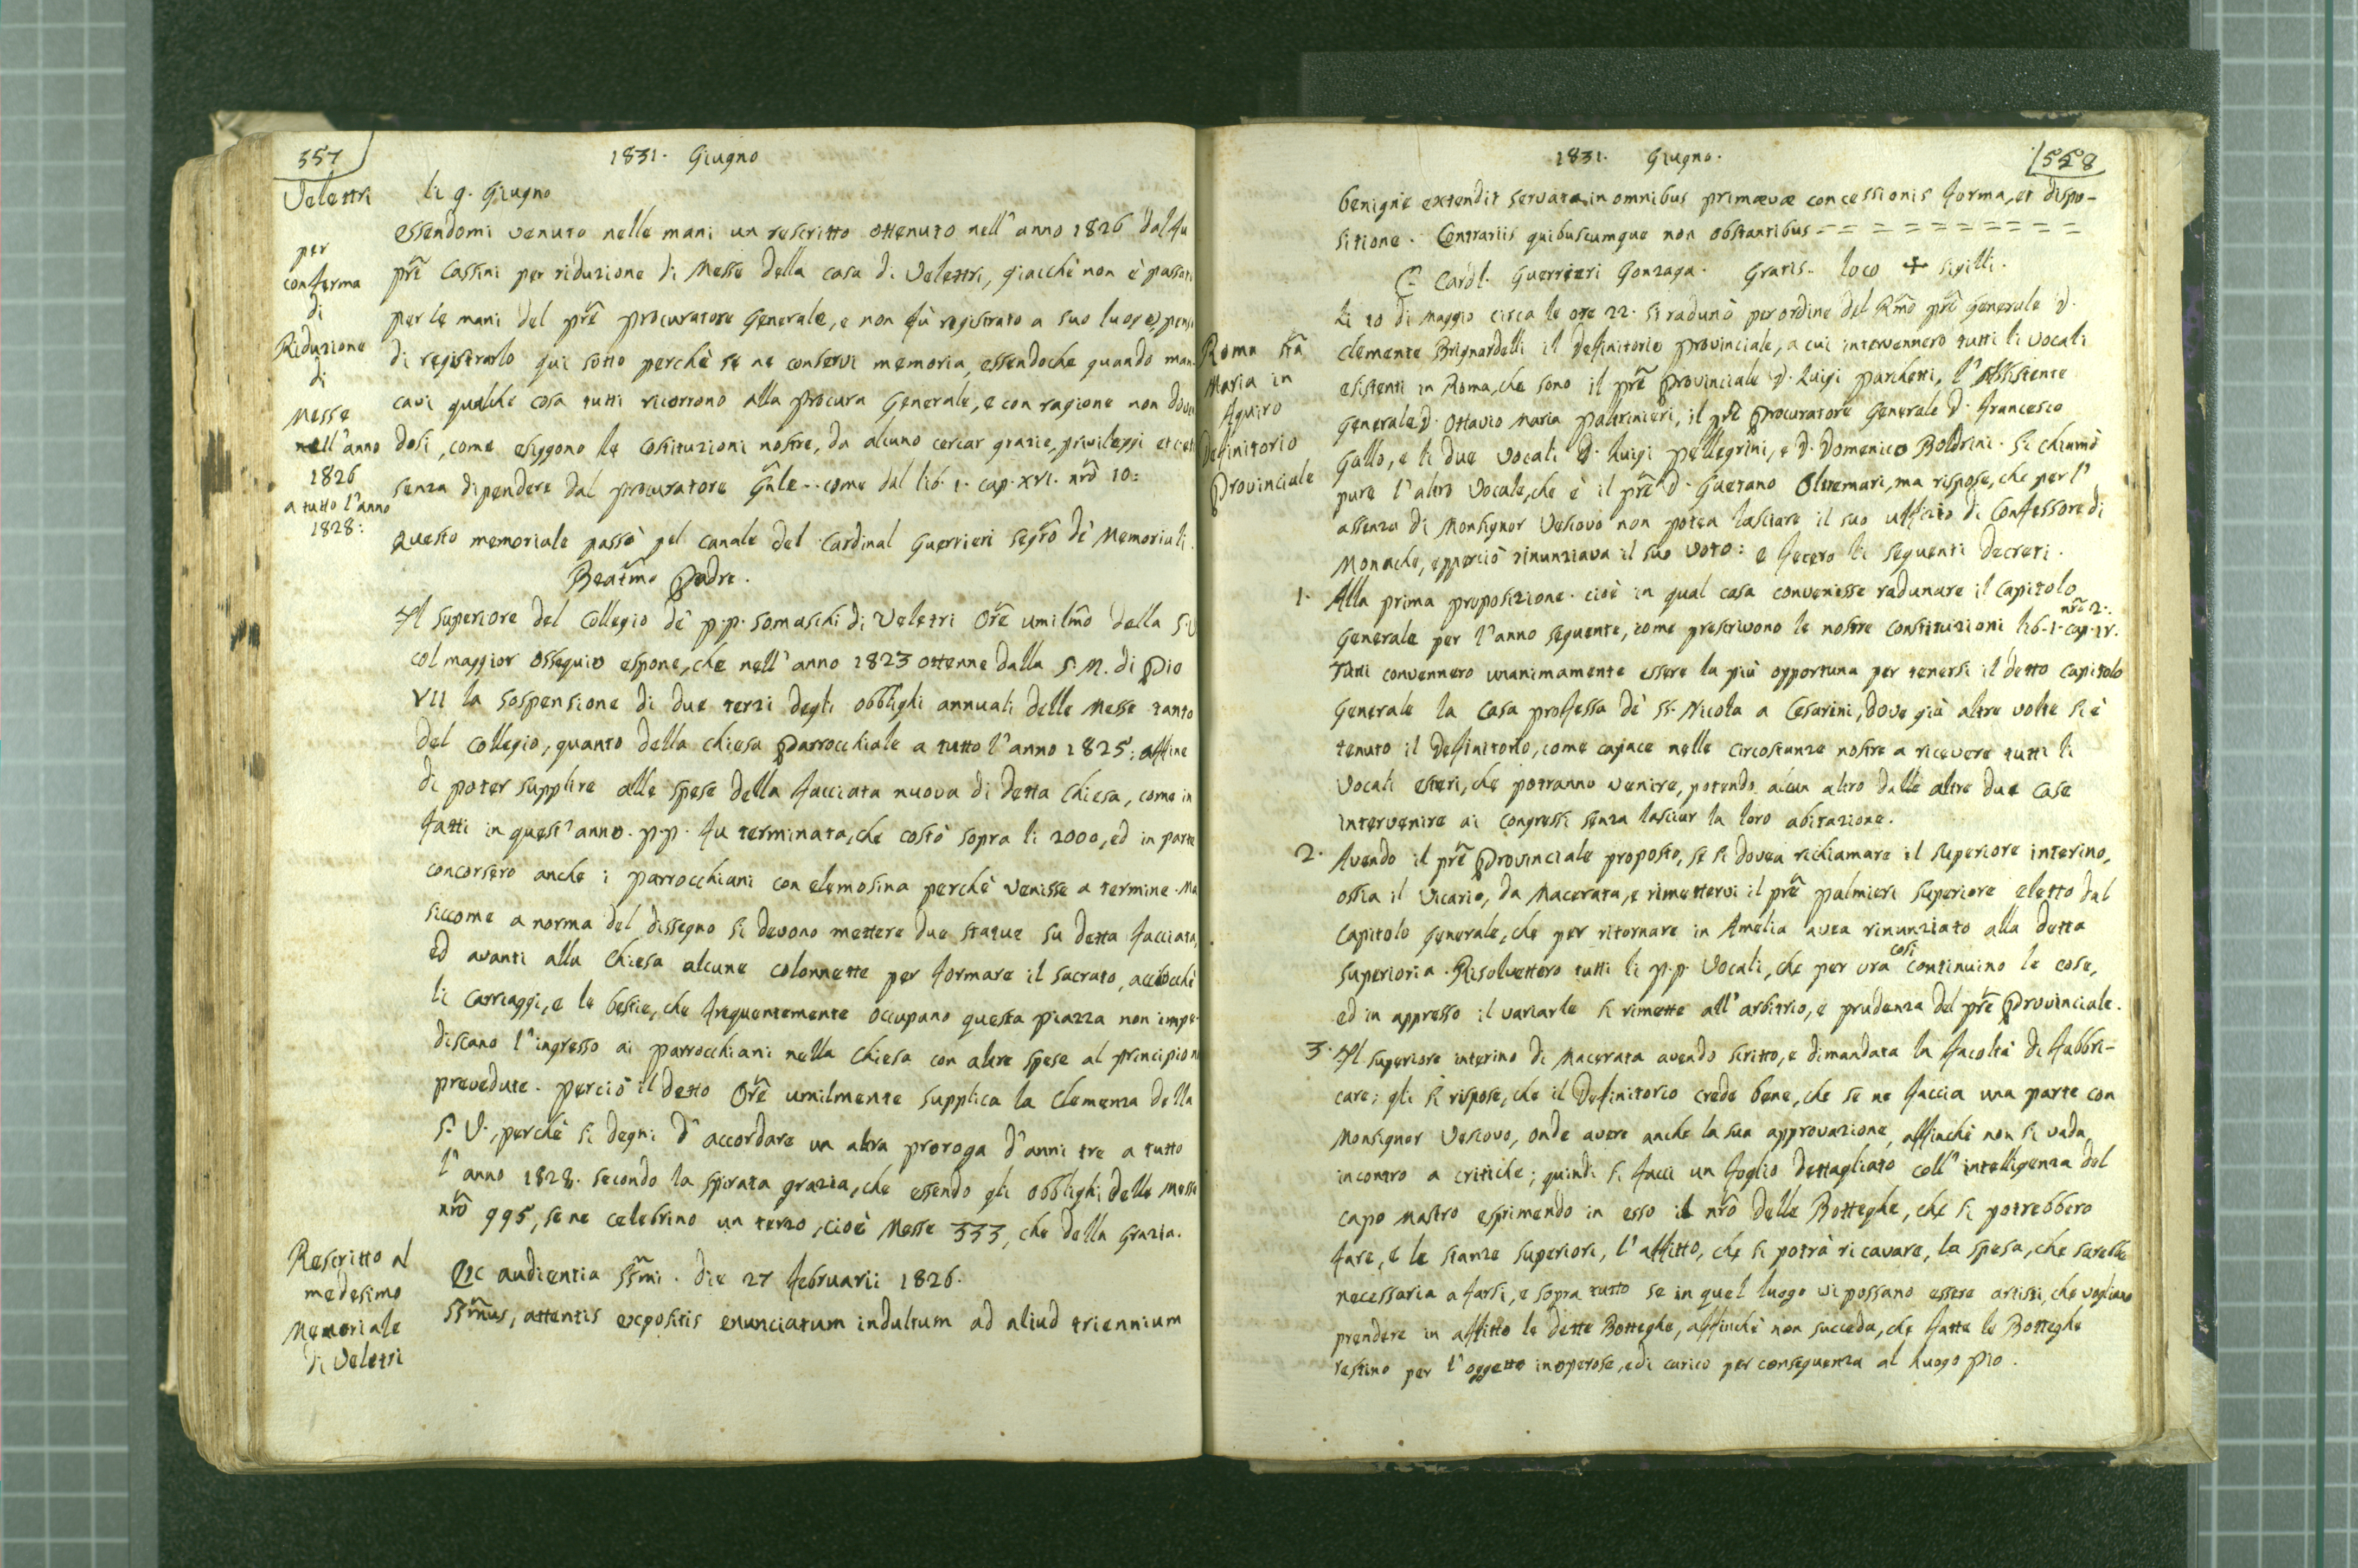 357
1831. Giugno
Veletri
per
conferma
di
Riduzione
di
Messe
nell'anno
1826
a tutto l'anno
1828:
li 9. Giugno
essendomi venuto nelle mani un rescritto ottenuto nell'anno 1826 dal fu
pre Cassini per riduzione di Messe della casa di Veletri, giacchè non è passato
per le mani del pre procuratore Generale, e non fù registrato a suo luogo, penso
di registrarlo qui sotto perchè se ne conservi memoria, essendoche quando man-
cavi qualche cosa tutti ricorrono alla procura Generale, e con ragione non doven
dosi, come esiggono le Costituzioni nostre, da alcuno cercar grazie, privileggi et cet
senza dipendere dal procuratore Gnle.. come dal lib. 1. cap. XVI. nro 10:
Questo memoriale passò pel canale del Cardinal Guerrieri segro dè Memoriali.
Beatmo Padre.
Il superiore del Collegio dè p.p. somaschi di Veletri Ore umilmo della S.V
col maggior ossequio espone, che nell'anno 1823 ottenne dalla S. M. di Pio
VII la sospensione di due terzi degli obblighi annuali delle Messe tanto
del Collegio, quanto della chiesa Parrocchiale a tutto l'anno 1825: affine
di poter supplire alle spese della facciata nuova di detta Chiesa, come in
fatti in quest'anno. p.p. fu terminata, che costò sopra li 2000, ed in parte
concorsero anche i parrocchiani con elemosina perchè venisse a termine. Ma
siccome a norma del dissegno si devono mettere due statue su detta facciata,
ed avanti alla Chiesa alcune colonnette per formare il sacrato, acciocchè
li Carriaggi, e le bestie, che frequentemente occupano questa piazza non impe-
discano l'ingresso ai parrocchiani nella Chiesa con altre spese al principio n
prevedute. perciò il detto Ore umilmente supplica la Clemenza della
S. V. perchè si degni d'accordare un altra proroga d'anni tre a tutto
l'anno 1828. secondo la spirata grazia, che essendo gli obblighi delle Messe
nro 995, se ne celebrino un terzo, cioè Messe 333, che della Grazia.
Rescritto al
medesimo
Memoriale
di Veletri
Ex audientia SSmi. die 27 februarii 1826.
SSmus, attentis expositis enunciatum indultum ad aliud triennium
1831. Giugno.
558
benigne extendit servata in omnibus primævæ concessionis forma, et dispo-
sitione. Contrariis quibuscumque non obstantibus = = = = = = = = = =
C. Cardl. Guerrieri Gonzaga. Gratis. loco ✠ sigilli.
Roma Sta
Maria in
Aquiro
Definitorio
Provinciale
li 10 di Maggio circa le ore 22. si radunò per ordine del Rmo pre Generale D.
Clemente Brignardelli il Definitorio provinciale, a cui intervennero tutti li vocali
esistenti in Roma, che sono il pre Provinciale D. Luigi parchetti, l'Assistente
Generale D. Ottavio Maria paltrinieri, il pre Procuratore Generale D. Francesco
Gallo, e li due Vocali D. Luigi pellegrini, e D. Domenico Boldrini. Si chiamò
pure l'altro Vocale, che è il pre D. Gaetano Oltremari, ma rispose, che per l'
assenza di Monsignor Vescovo non potea lasciare il suo uffizio di Confessore di
Monache, epperciò rinunziava il suo voto: e fecero li seguenti decreti.
1. Alla prima proposizione. cioè in qual casa convenisse radunare il Capitolo
Generale per l'anno seguente, come prescrivono le nostre Constituzioni lib. 1. cap. IV. nro 2:.
Tutti convennero unanimamente essere la più opportuna per tenersi il detto Capitolo
Generale la Casa professa dè SS. Nicola a Cesarini, dove già altre volte si è
tenuto il Definitorio, come capace nelle circostanze nostre a ricevere tutti li
Vocali esteri, che potranno venire, potendo alcun altro dalle altre due case
intervenire ai Congressi senza lasciar la loro abitazione.
2. Avendo il pre Provinciale proposto, se si dovea richiamare il superiore interino,
ossia il Vicario, da Macerata, e rimettervi il pre palmieri superiore eletto dal
Capitolo Generale, che per ritornare in Amelia avea rinunziato alla detta
superioria. Risolvettero tutti li p.p. Vocali, che per ora così continuino le cose,
ed in appresso il variarle si rimette all'arbitrio, e prudenza del pre Provinciale.
3. Il superiore interino di Macerata avendo scritto, e dimandata la facoltà di fabbri-
care; gli si rispose, che il Definitorio crede bene, che se ne faccia una parte con
Monsignor Vescovo, onde avere anche la sua approvazione, affinchè non si vada
incontro a critiche; quindi si facci un foglio dettagliato coll'intelligenza del
capo Mastro esprimendo in esso il nro delle Botteghe, che si potrebbero
fare, e le stanze superiori, l'affitto, che si potrà ricavare, la spesa, che sarebbe
necessaria a farsi, e sopra tutto se in quel luogo vi possano essere artisti, che vogliano
prendere in affitto le dette Botteghe, affinchè non succeda, che fatte le Botteghe
restino per l'oggetto inoperose, e di carico per conseguenza al Luogo pio.